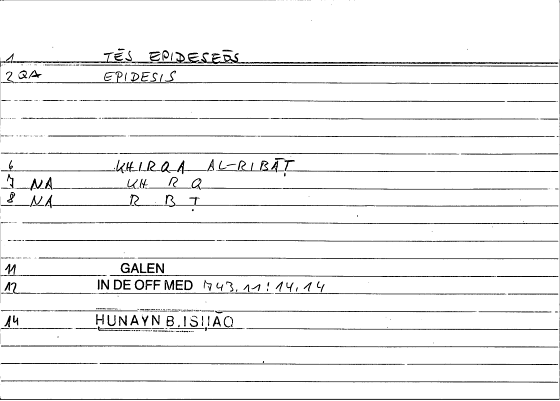 1 TĒS EPIDESEŌS
2 QA EPIDESIS
6 KHIRQA AL-RIBĀṬ
7 NA KH R Q
8 NA R B Ṭ
11 GALEN
12 IN DE OFF MED 743.11:14.14
14 HUNAYN B.ISḤĀQ